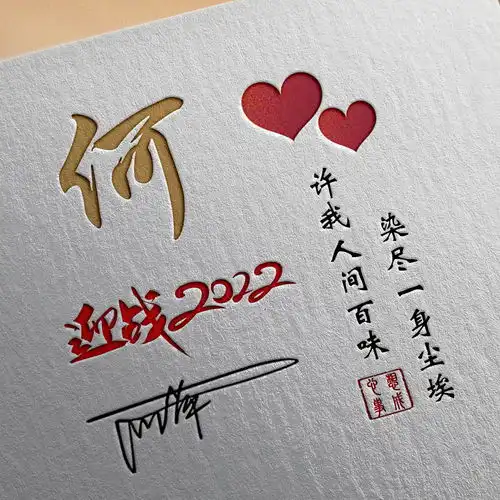 何
迎战2022
染尽一身尘埃
许我人间百味
心想事成